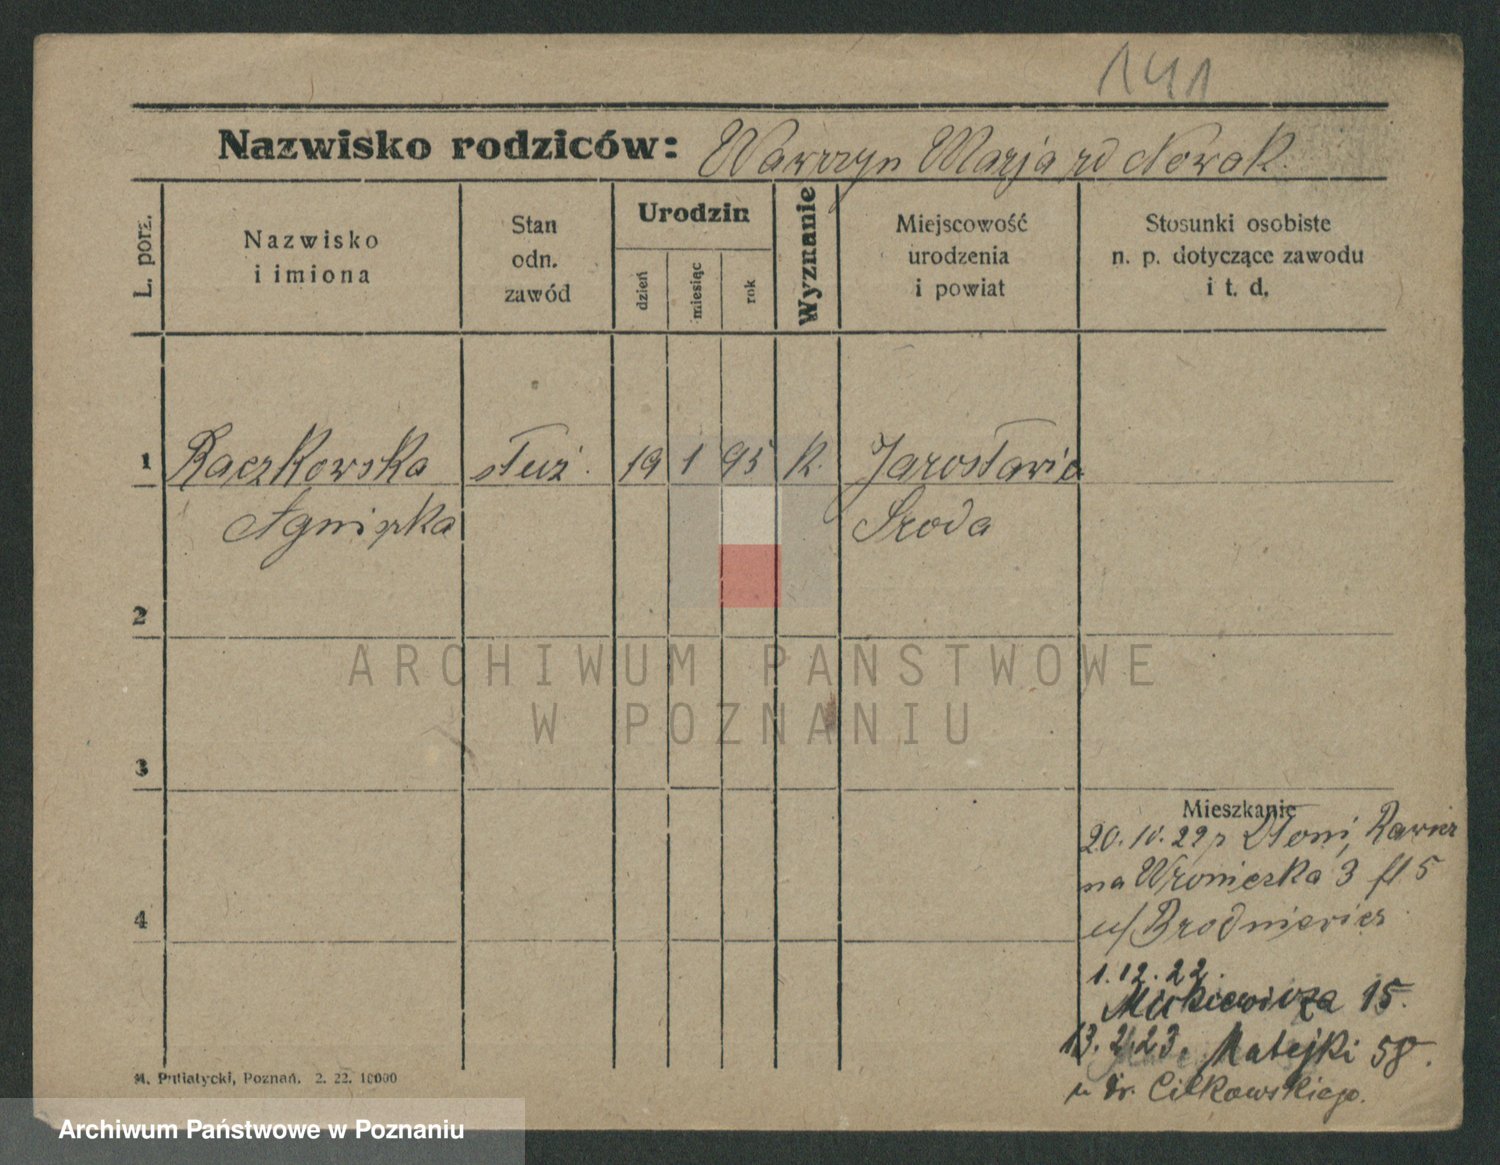 141
Nazwisko rodziców: Wawrzyn Marja zd Nowak.
L. porz.
Nazwisko
i imiona
Stan
odn.
zawód
Urodzin
dzień
miesiąc
rok
Wyznanie
Miejscowość
urodzenia
i powiat
Stosunki osobiste
n. p. dotyczące zawodu
i t. d.
1 Raczkowska służ. 19 1 95 K. Jarosławie
Agnieszka Środa
2
ARCHIWUM PAŃSTWOWE
W POZNANIU
3
Mieszkanie
20.10.22 z Dłoni, Rawicz
na Wroniecka 3 fl 5
u/ Brodniewicz
4
1.12.22.
Mickiewicza 15.
13.2.23. Matejki 58.
u Dr.
M. Putiatycki, Poznań. 2. 22. 10000
Archiwum Państwowe w Poznaniu